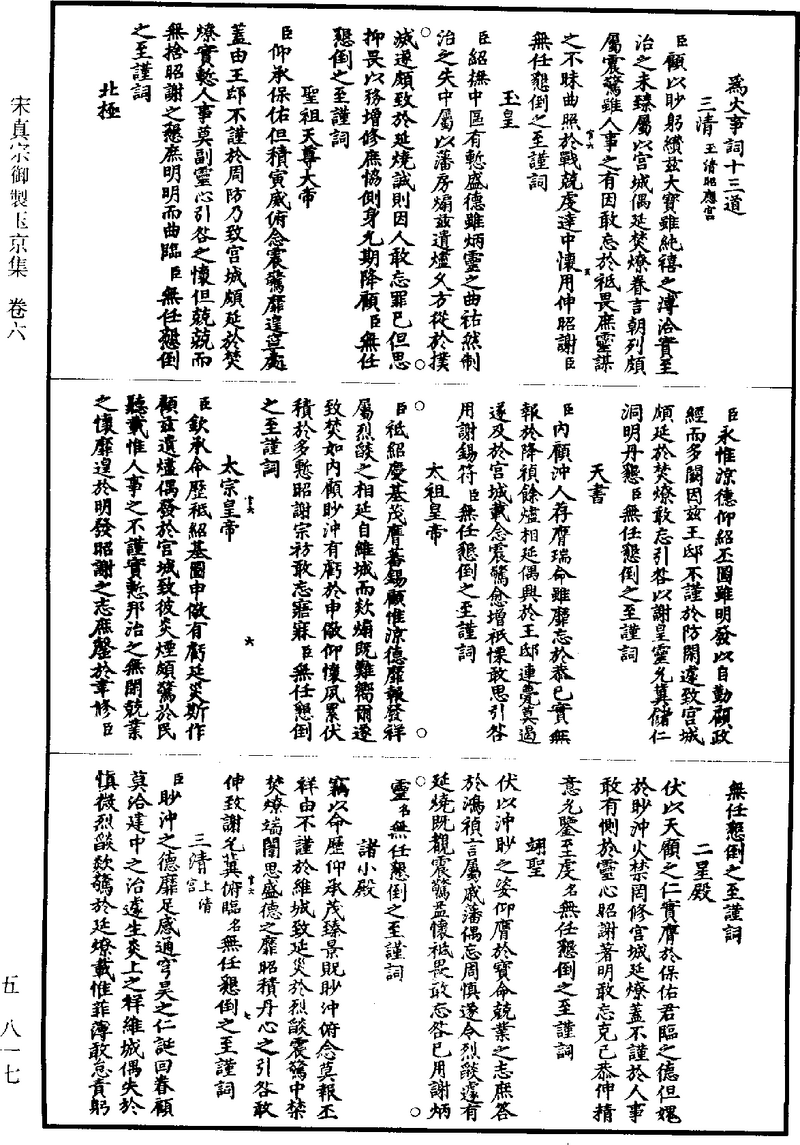 宋真宗御製玉京集 卷六
爲火事詞十三道
三清 玉清昭應宮
臣顧以眇躬纘玆大寶雖純禧之溥洽實至
治之未臻屬以宮城偶延焚燎眷言朝列頗
屬震驚雖人事之有因敢忘於祗畏庶靈謀
之不昧曲照於戰兢虔達中懷用伸昭謝臣
無任懇倒之至謹詞
玉皇
臣紹撫中區有慙盛德雖炳靈之曲祐然制
治之失中屬以藩房煽玆遺爐火方從於撲
滅遽頗致於延燒誠則因人敢忘罪已但思
抑畏以務增修庶協側身允期降顧臣無任
懇倒之至謹詞
聖祖天尊大帝
臣仰承保佑但積寅威俯念震驚靡遑寧處
蓋由王邸不謹於周防乃致宮城頗延於焚
燎實慙人事莫副靈心引咎之懷但兢兢而
無捨昭謝之懇庶明明而曲臨臣無任懇倒
之至謹詞
北極
臣永惟涼德仰紹丕圖雖明發以自勤顧政
經而多闕因玆王邸不謹於防閑遽致宮城
頗延於焚燎敢忘引咎以謝皇靈允冀儲仁
洞明丹懇臣無任懇倒之至謹詞
天書
臣內顧沖人荐膺瑞命雖靡忘於恭已實無
報於降禎餘燼相延偶興於王邸連甍莫遏
遂及於宮城載念震驚愈增祗慄敢思引咎
用謝錫符臣無任懇倒之至謹詞
太祖皇帝
臣祗紹慶基茂膺蕃錫顧惟涼德靡報發祥
屬烈燄之相延自維城而欻煽旣難嚮爾遂
致焚如內顧眇沖有虧於申儆仰懷夙累伏
積於多慙昭謝宗祊敢忘寤寐臣無任懇倒
之至謹詞
太宗皇帝
臣欽承命歷祗紹基圖申儆有虧延災斯作
顧玆遺爐偶發於宮城致彼炎煙頗驚於民
聽載惟人事之不謹實慙邦治之無閑兢業
之懷靡遑於明發昭謝之志庶罄於聿修臣
無任懇倒之至謹詞
二星殿
伏以天顧之仁實膺於保佑君臨之德但媿
於眇沖火禁罔修宮城延燎蓋不謹於人事
敢有惻於靈心昭謝著明敢忘克己恭伸精
意允鑒至虔名無任懇倒之至謹詞
翊聖
伏以沖眇之姿仰膺於寶命兢業之志庶答
於鴻禎言屬戚藩偶忘周慎遂令烈燄遽有
延燒旣觀震驚益懷祗畏敢忘咎已用謝炳
靈名無任懇倒之至謹詞
諸小殿
竊以命歷仰承茂臻景貺眇沖俯念莫報丕
祥由不謹於維城致延災於烈燄震驚中禁
焚燎端闈思盛德之靡昭積丹心之引咎敢
伸致謝允冀俯臨名無任懇倒之至謹詞
三清 上清宮
臣眇沖之德靡足感通穹昊之仁誕回眷顧
莫洽建中之治遽生炎上之祥維城偶失於
慎微烈燄欻驚於延燎載惟菲薄敢怠責躬
五 八一七